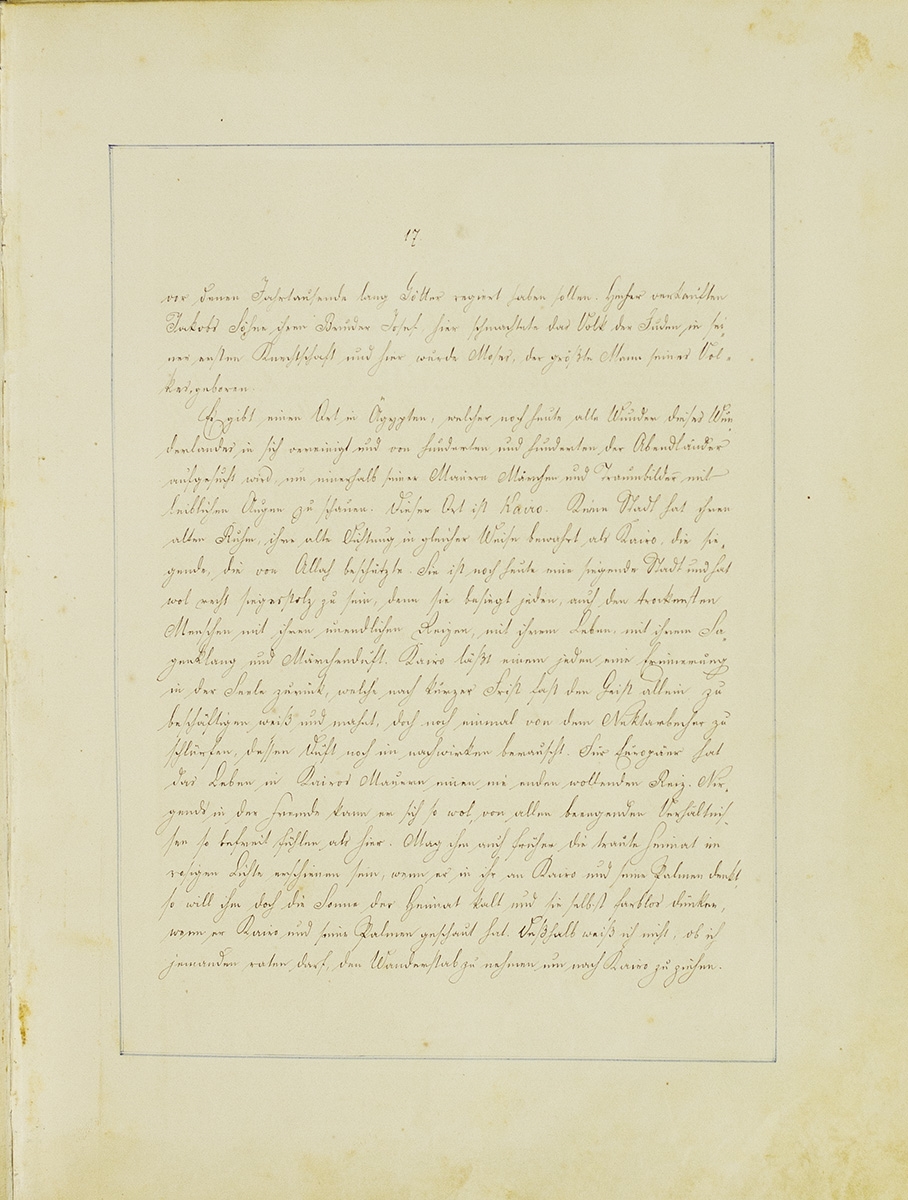 17.
vor denen Jahrtausende lang Götter regiert haben sollen. Hierher verkauften
Jakobs Söhne ihren Bruder Josef, hier schmachtete das Volk der Juden in sei-
ner ersten Knechtschaft und hier wurde Moses, der größte Mann seines Vol-
kes, geboren.
Es gibt einen Ort in Ägypten, welcher noch heute alle Wunder dieses Wun-
derlandes in sich vereinigt und von hunderten und hunderten der Abendländer
aufgesucht wird, um innerhalb seiner Mauern Märchen und Traumbilder mit
leiblichen Augen zu schauen. Dieser Ort ist Kairo. Keine Stadt hat ihren
alten Ruhm, ihre alte Richtung in gleicher Weise bewahrt als Kairo, die sie-
gende, die von Allah beschützte. Sie ist noch heute eine siegende Stadt und hat
wol recht siegesstolz zu sein, denn sie besiegt jeden, auch den trockensten
Menschen mit ihren unendlichen Reizen, mit ihrem Leben, mit ihrem Sa-
genklang und Märchenduft. Kairo läßt einem jeden eine Erinnerung
in der Seele zurück, welche nach kurzer Frist fast den Geist allein zu
beschäftigen weiß und mahnt, doch noch einmal von dem Nektarbecher zu
schlürfen, dessen Duft noch im nachwirken berauscht. Für Europäer hat
das Leben in Kairos Mauern einen nie enden wollenden Reiz. Nir-
gends in der Fremde kann er sich so wol, von allen beengenden Verhältnis-
sen so befreit fühlen als hier. Mag ihm auch früher die traute Heimat im
rosigen Lichte erschienen sein, wenn er in ihr an Kairo und seine Palmen denkt,
so will ihm doch die Sonne der Heimat kalt und sie selbst farblos dünken,
wenn er Kairo und seine Palmen geschaut hat. Deßhalb weiß ich nicht, ob ich
jemanden raten darf, den Wanderstab zu nehmen um nach Kairo zu ziehen.